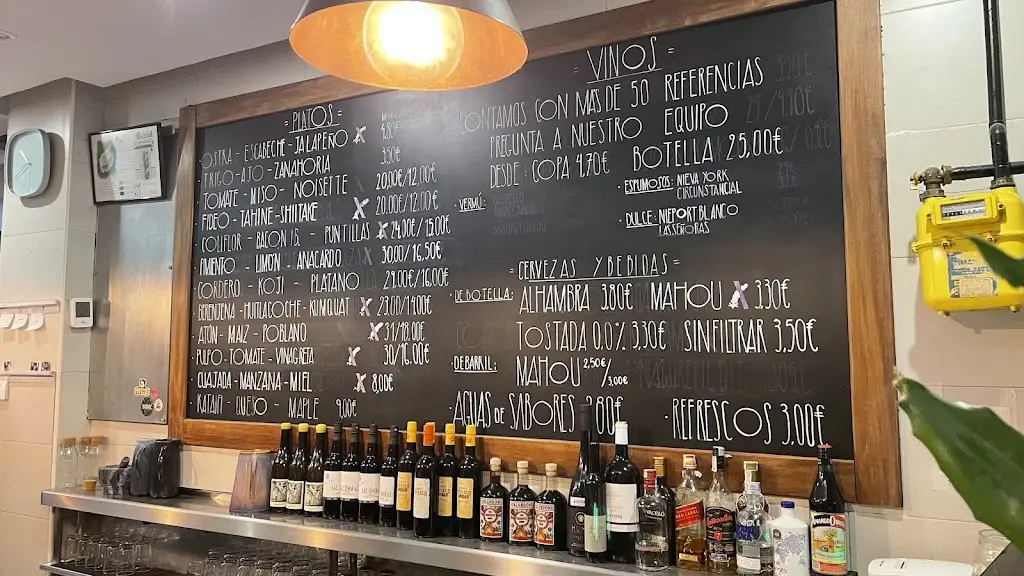 = PLATOS =
OSTRA - ESCABECHE - JALAPEÑO
TRIGO - AJO - ZANAHORIA 3,50€
TOMATE - MISO - NOISETTE 20,00€/12,00€
FIDEO - TAHINE - SHIITAKE 20,00€/12,00€
COLIFLOR - BACON IB. - PUNTILLAS 24,00€/15,00€
PIMIENTO - LIMÓN - ANACARDO 30,00/16,50€
CORDERO - KOJI - PLATANO
BERENJENA - HUITLACOCHE - KUMQUAT 23,00/14,00€
ATÚN - MAIZ - POBLANO 31/18,00€
PULPO - TOMATE - VINAGRETA 30/16,00€
CUAJADA - MANZANA - MIEL 8,00€
KATAIFI - QUESO - MAPLE 9,00€
= VINOS =
CONTAMOS CON MÁS DE 50 REFERENCIAS
PREGUNTA A NUESTRO EQUIPO
DESDE: COPA 4,70€ BOTELLA 25,00€
· VERMÚ:
· ESPUMOSOS: NUEVA YORK
CIRCUNSTANCIAL
· DULCE: NIEPORT BLANCO
LAS SEÑORAS
= CERVEZAS Y BEBIDAS =
· DE BOTELLA: ALHAMBRA 3,80€ MAHOU 3,30€
TOSTADA 0,0% 3,30€ SIN FILTRAR 3,50€
· DE BARRIL: MAHOU 2,50€/3,00€
· AGUAS DE SABORES 2,80€ · REFRESCOS 3,00€